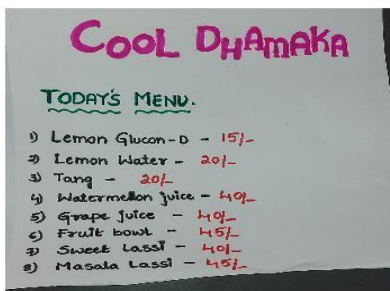 COOL DHAMAKA
TODAY'S MENU.
1) Lemon Glucon-D - 15/-
2) Lemon Water - 20/-
3) Tang - 20/-
4) Watermellon juice - 40/-
5) Grape juice - 40/-
6) Fruit bowl - 45/-
7) Sweet Lassi - 40/-
8) Masala Lassi - 45/-